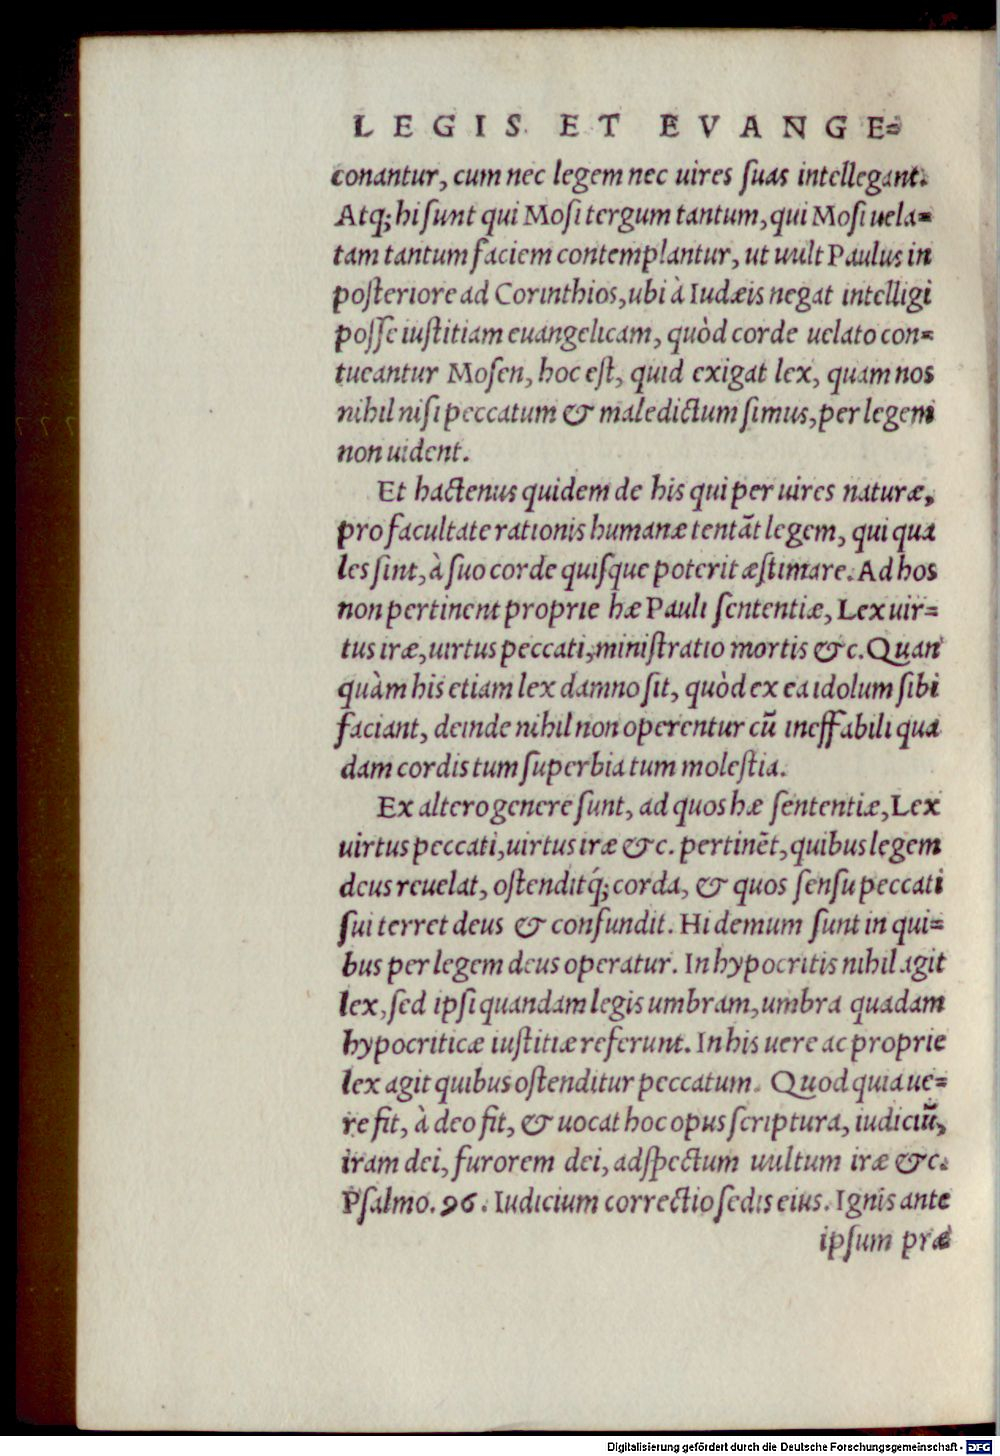 LEGIS ET EVANGE=
conantur, cum nec legem nec uires ſuas intellegant.
Atq; hi ſunt qui Moſi tergum tantum, qui Moſi uela=
tam tantum faciem contemplantur, ut uult Paulus in
poſteriore ad Corinthios, ubi à Iudæis negat intelligi
poſſe iuſtitiam euangelicam, quòd corde uelato con=
tueantur Moſen, hoc eſt, quid exigat lex, quam nos
nihil niſi peccatum & maledictum ſimus, per legem
non uident.
Et hactenus quidem de his qui per uires naturæ,
pro facultate rationis humanæ tentãt legem, qui qua
les ſint, à ſuo corde quiſque poterit æſtimare. Ad hos
non pertinent proprie hæ Pauli ſententiæ, Lex uir=
tus iræ, uirtus peccati, miniſtratio mortis &c. Quan
quàm his etiam lex damno ſit, quòd ex ea idolum ſibi
faciant, deinde nihil non operentur cū ineffabili qua
dam cordis tum ſuperbia tum moleſtia.
Ex altero genere ſunt, ad quos hæ ſententiæ, Lex
uirtus peccati, uirtus iræ &c. pertinẽt, quibus legem
deus reuelat, oſtenditq́; corda, & quos ſenſu peccati
ſui terret deus & confundit. Hi demum ſunt in qui=
bus per legem deus operatur. In hypocritis nihil agit
lex, ſed ipſi quandam legis umbram, umbra quadam
hypocriticæ iuſtitiæ referunt. In his uere ac proprie
lex agit quibus oſtenditur peccatum. Quod quia ue=
re fit, à deo fit, & uocat hoc opus ſcriptura, iudiciū,
iram dei, furorem dei, adſpectum uultum iræ &c.
Pſalmo. 96. Iudicium correctio ſedis eius. Ignis ante
ipſum præ
Digitalisierung gefördert durch die Deutsche Forschungsgemeinschaft - DFG